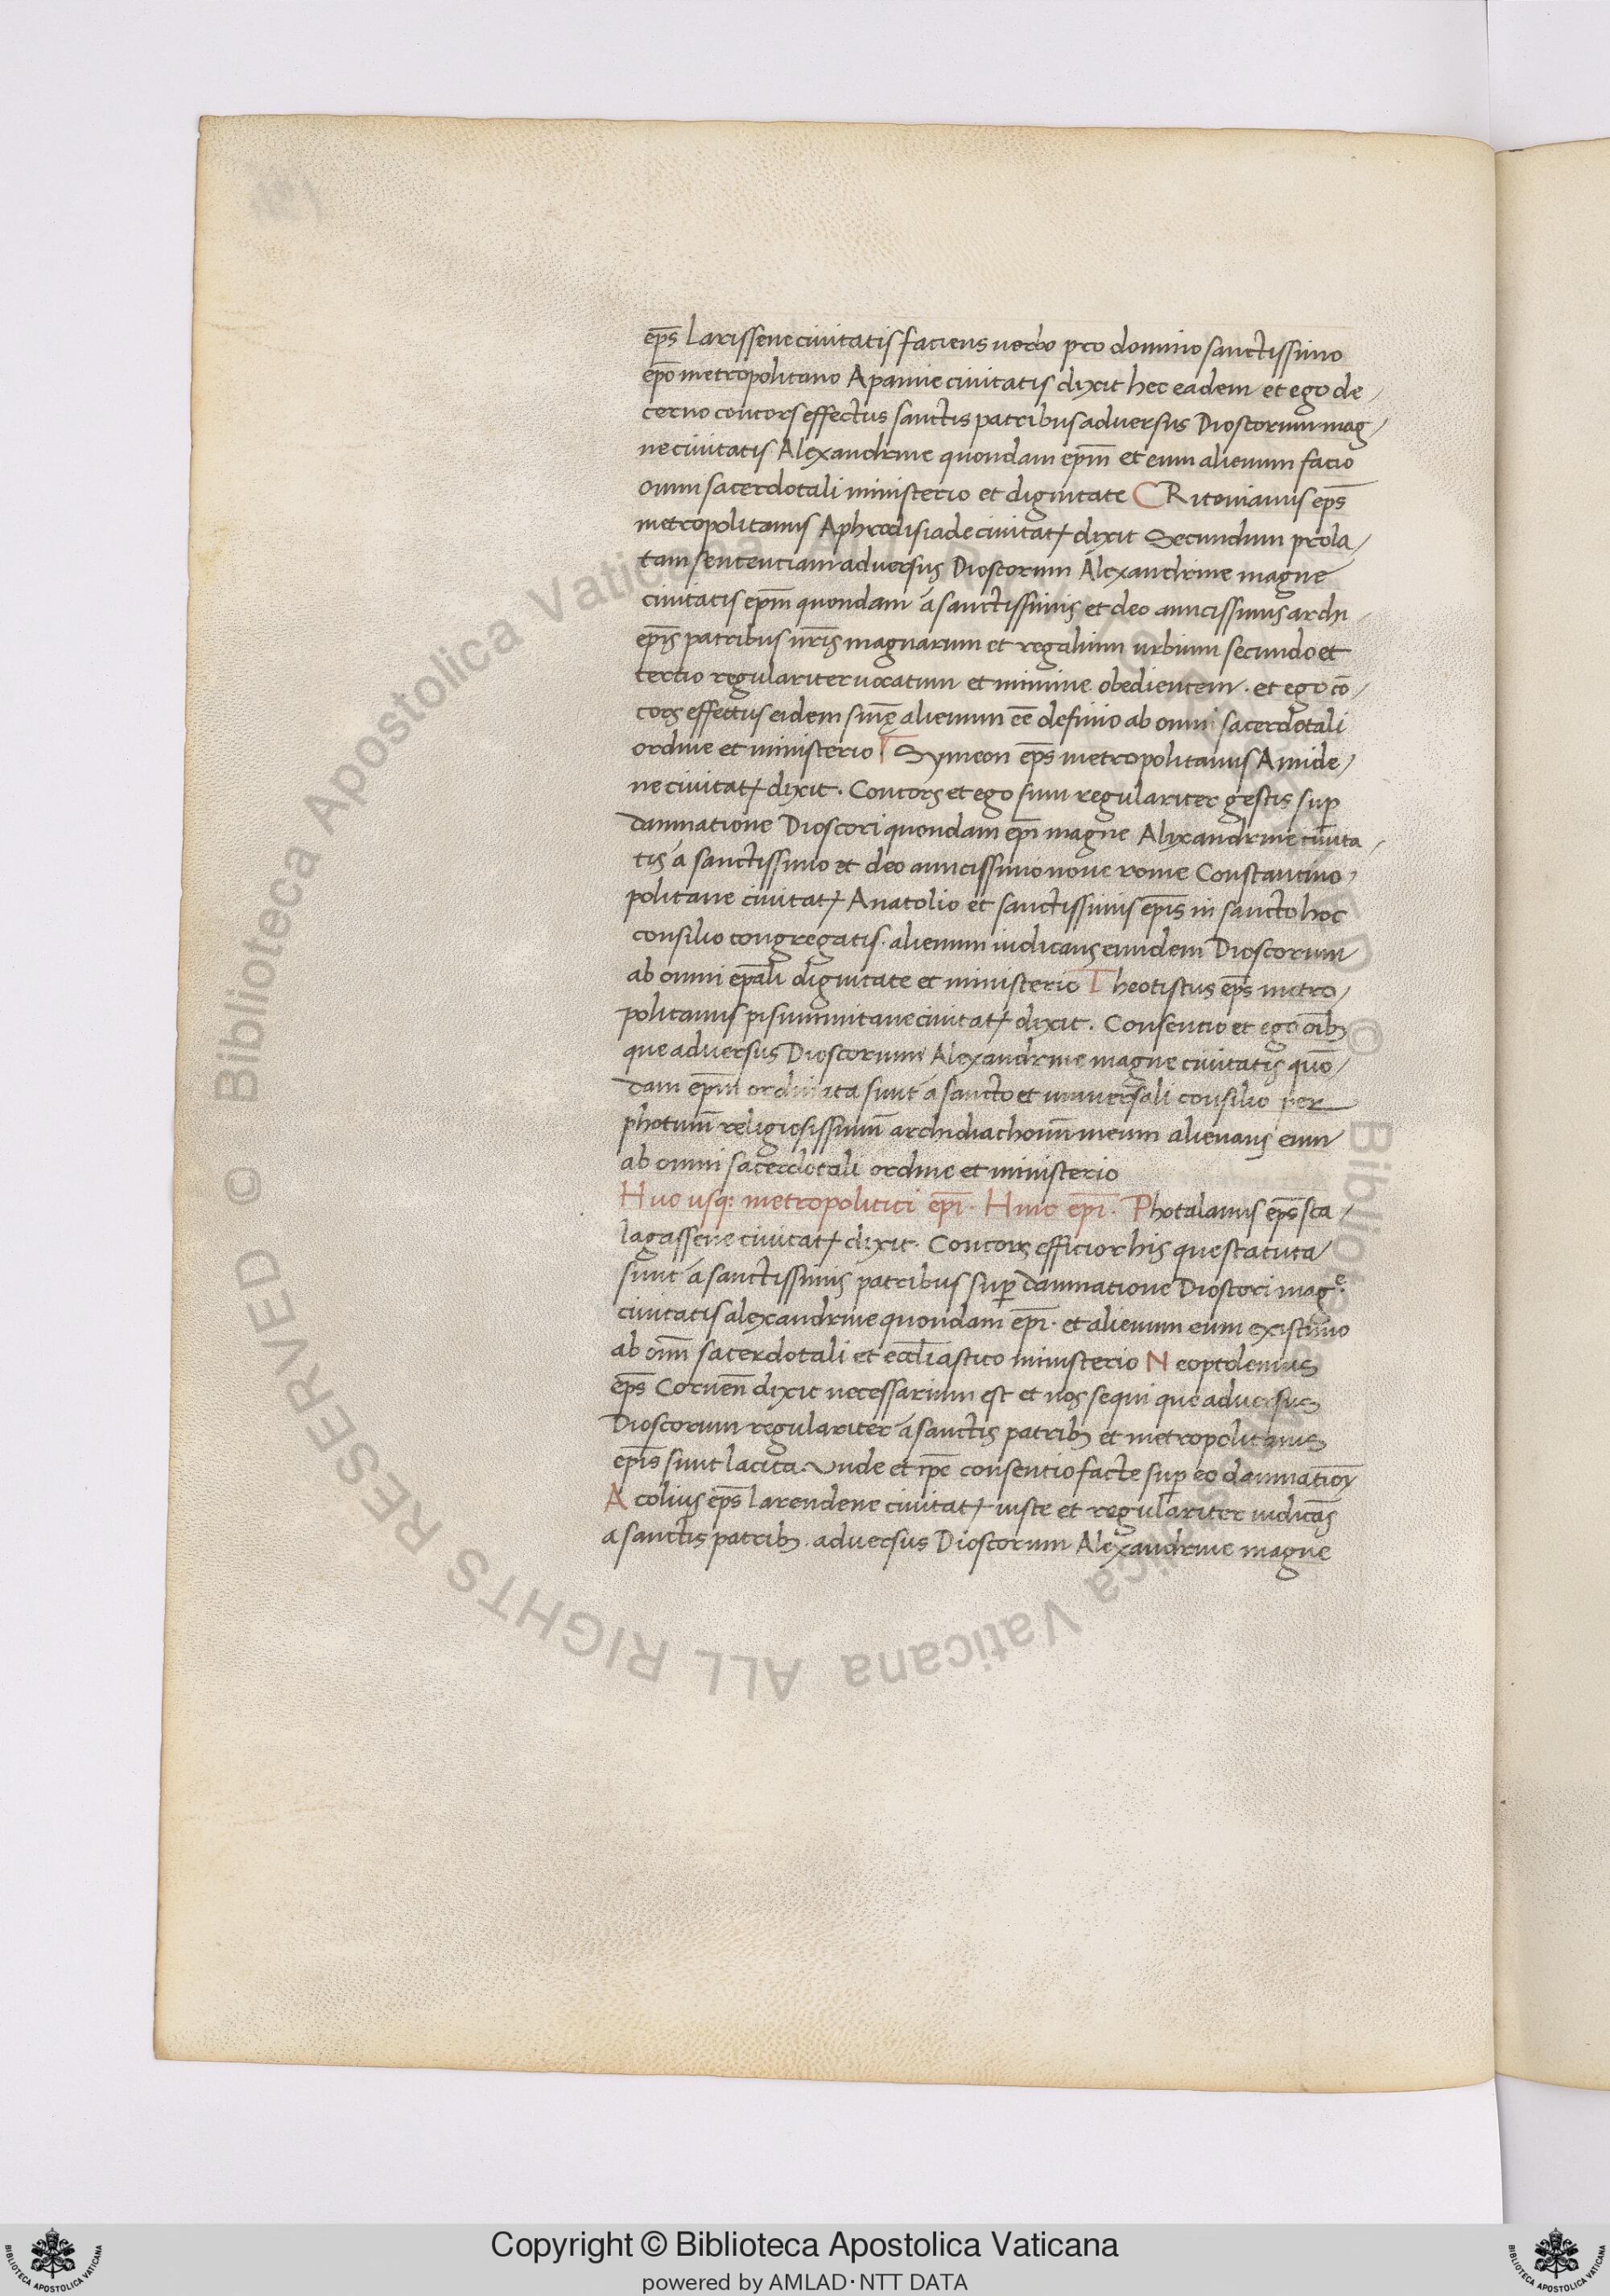 ep̅s Larissene civitatis faciens verbo pro domino sanctissimo
ep̅o metropolitano Apamie civitatis dixit hec eadem et ego de/
cerno concors effectus sanctis patribus adversus Dioscorum mag/
ne civitatis Alexandrine quondam ep̅m et eum alienum facio
omni sacerdotali ministerio et dignitate CRitonianus ep̅s
metropolitanus Aphrodisiade civitat⸗ dixit Secundum prola/
tam sentenciam adversus Dioscorum Alexandrine magne
civitatis ep̅m quondam á sanctissimis et deo amicissimis archi
ep̅is patribus nr̅is magnarum et regalium urbium secundo et
tertio regulariter vocatum et minime obedientem. et ego co̅/
cors effettus eidem sin̅ę alienum ee̅ definio ab omni sacerdotali
ordine et ministerio Symeon ep̅s metropolitanus Amide/
ne civitat⸗ dixit. Concors et ego sum regulariter gestis sup̅
damnatione Dioscori quondam ep̅i magne Alixandrine civita/
tis á sanctissimo et deo amicissimo nove rome Constantino/
politane civitat⸗ Anatolio et sanctissimis ep̅is in sancto hoc
consilio congregatis. alienum iudicans eundem Dioscorum
ab omni ep̅ali dignitate et ministerio Theotistus ep̅s metro/
politanus pisummitane civitat⸗ dixit. Consentio et ego oi̅bꝫ
que adversus Dioscorum Alexandrine magne civitatis quo̅/
dam ep̅m ordinata sunt á sancto et universali consilio per
photinu̅ religiosissimu̅ archidiachonu̅ meum alienans eum
ab omni sacerdotali ordine et ministerio
Huc usq: metropolitici ep̅i. Hinc ep̅i. Photalamus ep̅s sta/
lagassene civitat⸗ dixit. Concors efficior his que statuta
sunt á sanctissimis patribus sup̅ damnatione Dioscori mage.
civitatis alexandrine quondam ep̅i. et alienum eum existimo
ab om̅i sacerdotali et eccl̅iastico ministerio Neoptolemus
ep̅s Corven̅ dixit necessarium est et nos sequi que adversus
Dioscorum regulariter á sanctis patribꝫ et metropolitanis
ep̅is sunt lacita. Unde et ip̅e consentio facte sup̅ eo damnatioȳ
Acolius ep̅s larendene civitat⸗ iuste et regulariter iudica̅s
a sanctis patribꝫ. adversus Dioscorum Alexandrine magne
Copyright © Biblioteca Apostolica Vaticana
powered by AMLAD·NTT DATA